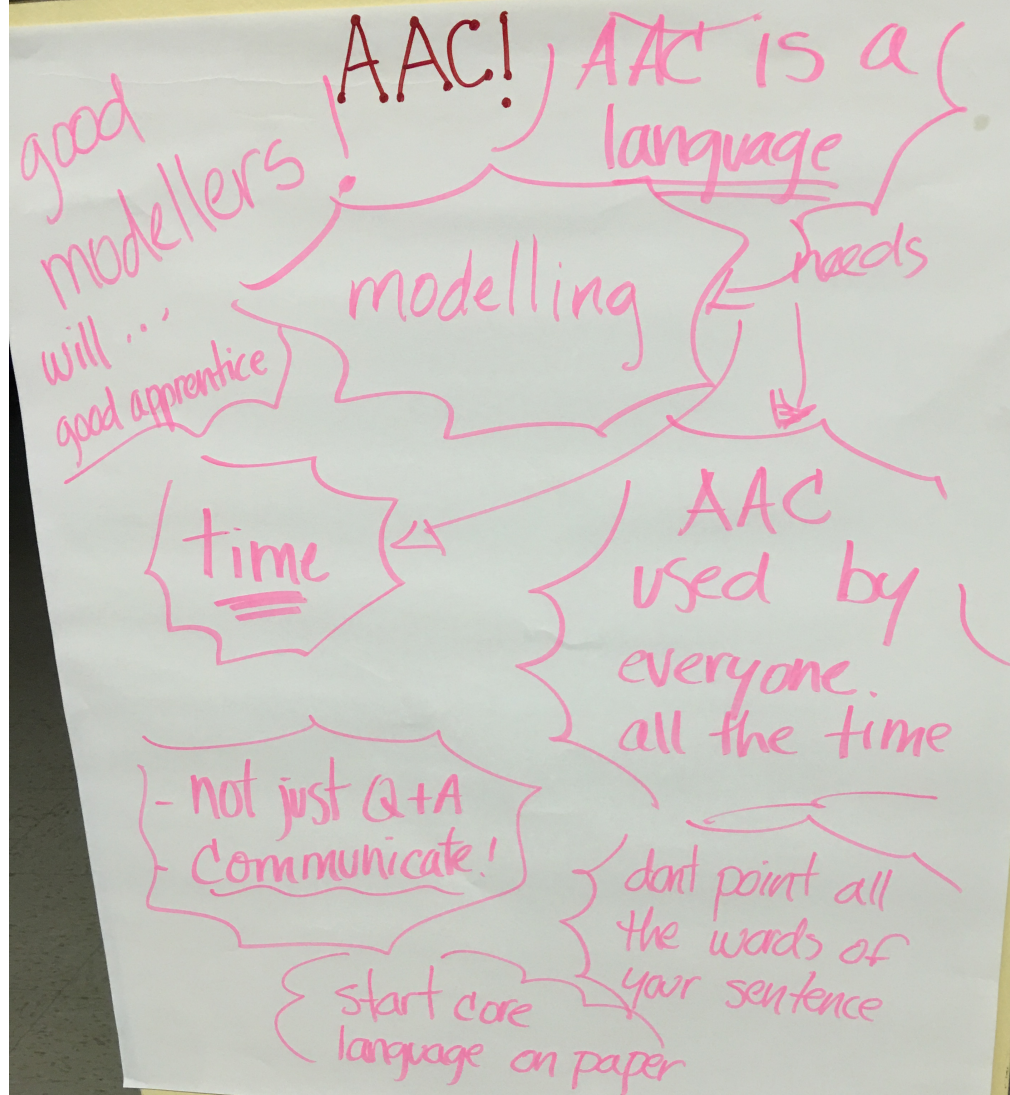 AAC!
AAC is a
language
good
modellers
will...
good apprentice
modelling
needs
time
AAC
used by
everyone.
all the time
- not just Q+A
- Communicate!
dont point all
the words of
your sentence
start core
language on paper